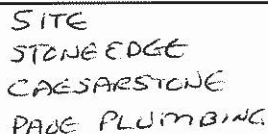 SITE
STONEEDGE
CAESARSTONE
PACE PLUMBING